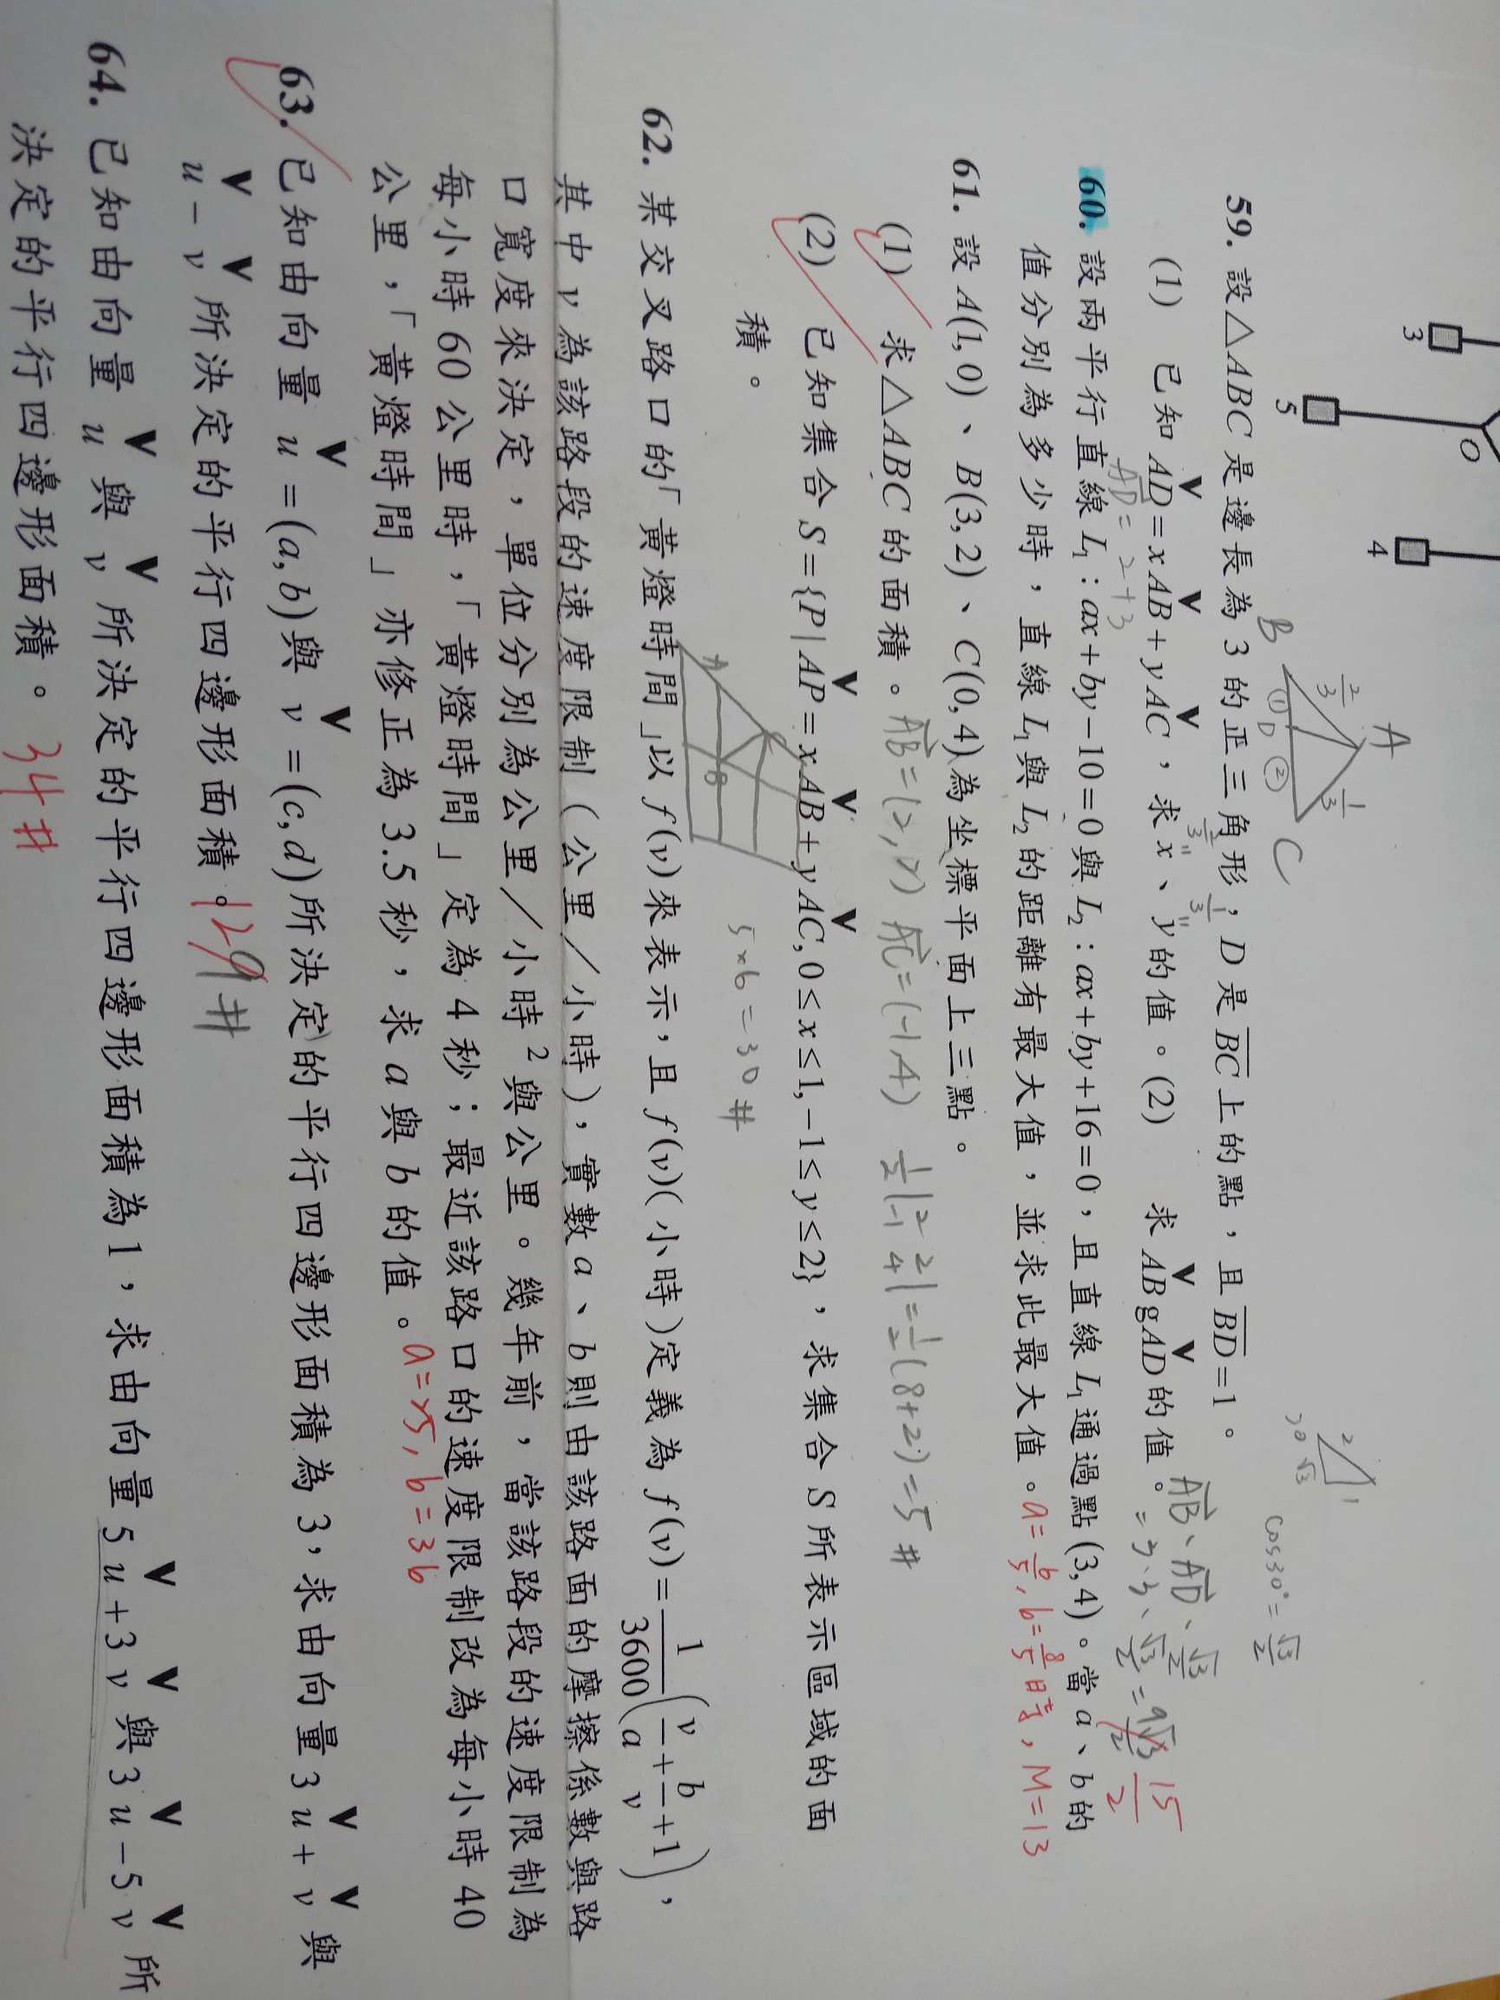 3
5
4
O
A
B
C
D
① ②
2/3
1/3
59. 設△ABC 是邊長為 3 的正三角形，D 是 BC 上的點，且 BD=1。
(1) 已知 AD=xAB+yAC，求 x、y 的值。(2) 求 ABgAD 的值。
2/3 1/3
AD= 2+3
2 1 √3
cos30°=√3/2
AB·AD·√3/2
=3·3·√3/2=9√3/2
15/2
60. 設兩平行直線 L₁：ax+by−10=0 與 L₂：ax+by+16=0，且直線 L₁ 通過點 (3,4)。當 a、b 的
值分別為多少時，直線 L₁ 與 L₂ 的距離有最大值，並求此最大值。a=6/5, b=8/5時, M=13
61. 設 A(1,0)、B(3,2)、C(0,4) 為坐標平面上三點。
(1) 求△ABC 的面積。AB=(2,2) AC=(-1,4) 1/2|2 2 -1 4|=1/2(8+2)=5#
(2) 已知集合 S={P|AP=xAB+yAC,0≤x≤1,−1≤y≤2}，求集合 S 所表示區域的面
積。
A B C
5×6=30#
62. 某交叉路口的「黃燈時間」以 f(v) 來表示，且 f(v)(小時)定義為 f(v)=1/3600(v/a+b/v+1)，
其中 v 為該路段的速度限制（公里／小時），實數 a、b 則由該路面的摩擦係數與路
口寬度來決定，單位分別為公里／小時²與公里。幾年前，當該路段的速度限制為
每小時 60 公里時，「黃燈時間」定為 4 秒；最近該路口的速度限制改為每小時 40
公里，「黃燈時間」亦修正為 3.5 秒，求 a 與 b 的值。a=25, b=36
63. 已知由向量 u=(a,b) 與 v=(c,d) 所決定的平行四邊形面積為 3，求由向量 3u+v 與
u−v 所決定的平行四邊形面積。12#
64. 已知由向量 u 與 v 所決定的平行四邊形面積為 1，求由向量 5u+3v 與 3u−5v 所
決定的平行四邊形面積。34#